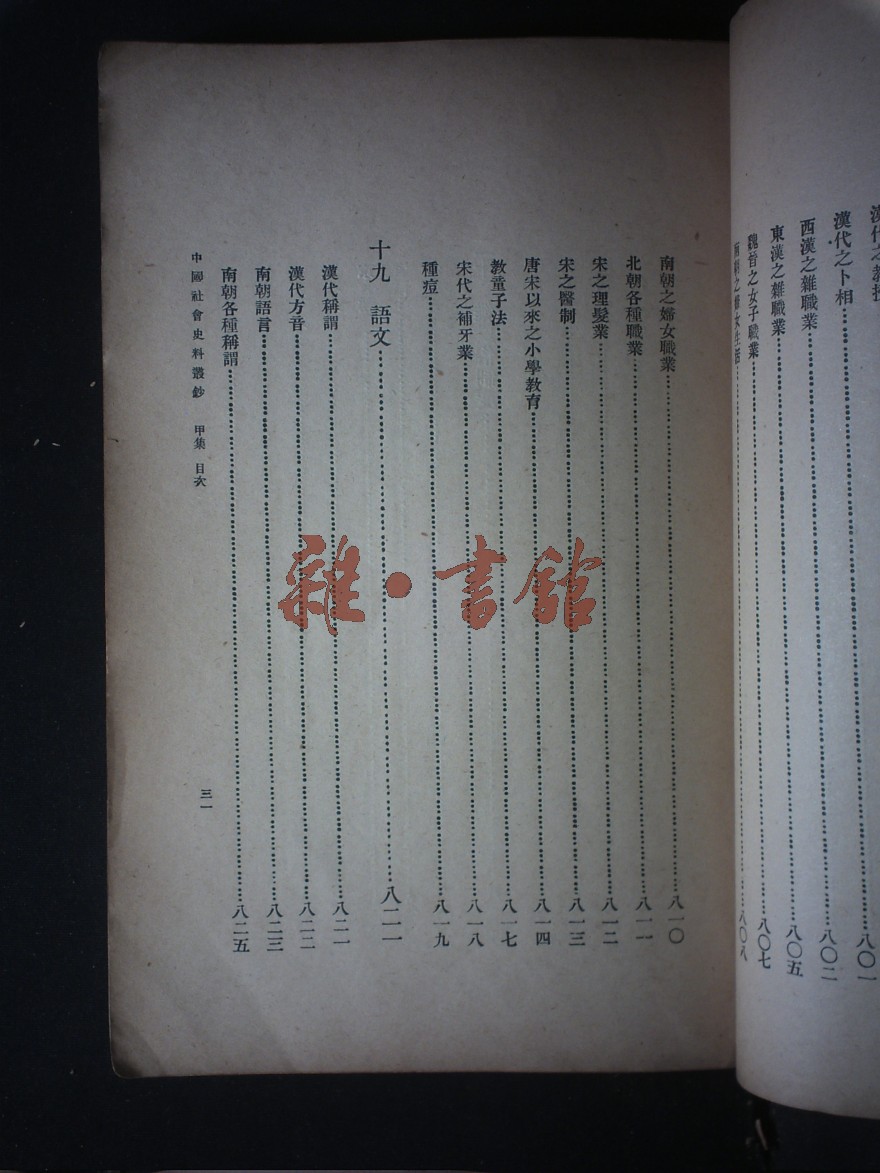 漢代之卜相……八〇二
西漢之雜職業……八〇五
東漢之雜職業……八〇七
魏晉之女子職業……八〇八
南朝之婦女職業……八一〇
北朝各種職業……八一一
宋之理髮業……八一二
宋之醫制……八一三
唐宋以來之小學教育……八一四
教童子法……八一七
宋代之補牙業……八一八
種痘……八一九
十九 語文……八二一
漢代稱謂……八二一
漢代方音……八二二
南朝語言……八二三
南朝各種稱謂……八二五
中國社會史料叢鈔 甲集 目次
三一
雜·書館